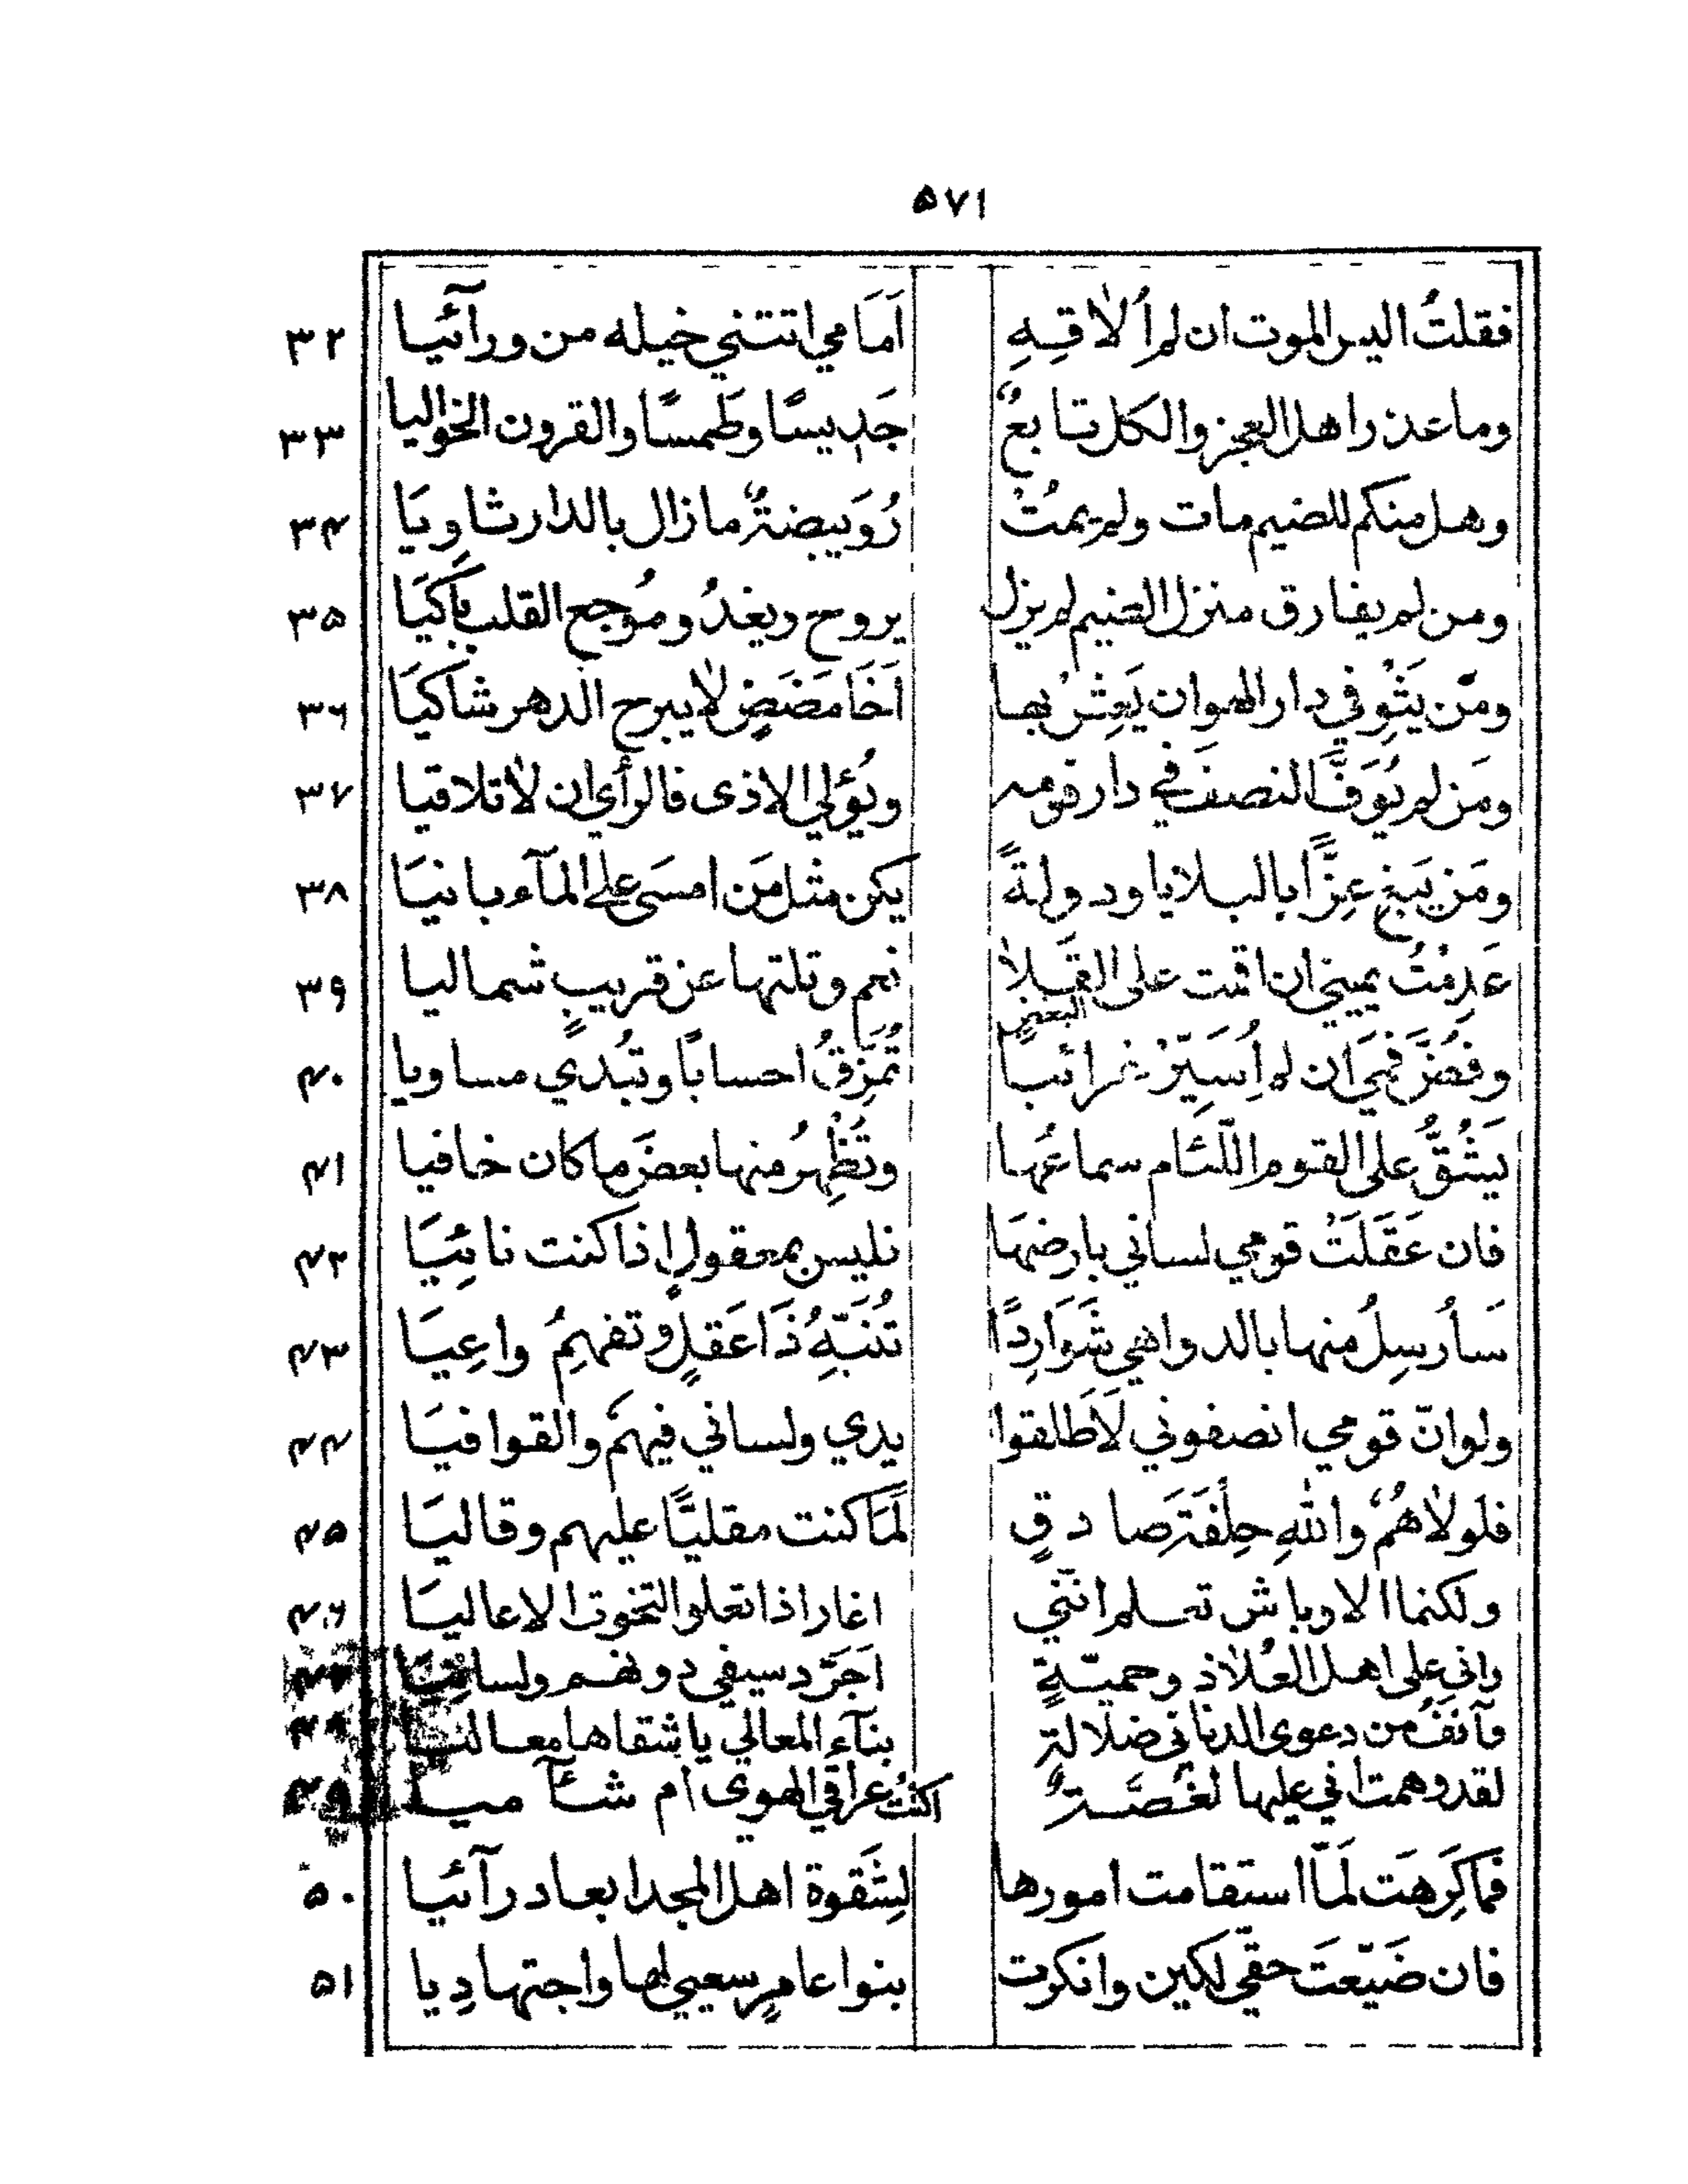 ۵۷۱
فقلتُ اليس الموت ان لم أُلاقِهِ اَمَامي اتتني خيله من ورآئيا ۳۲
وما عذر اهل العجز والكل تابعٌ جَديسًا وطَمسًا والقرون الخواليا ۳۳
وهل منكم للضيم مات ولم يمُتْ رُوَيبِضةٌ ما زال بالدار ثاويَا ۳۴
ومن لم يفارق منزل الضيم لم يزل يروح ويغدُ ومُوجع القلب باكيَا ۳۵
ومَن يَثْوِ في دار الهوان يَعِشْ بها اَخَا مَضَضٍ لا يبرح الدهر شاكيَا ۳۶
ومَن لم يُوَفَّ النصف في دار قومه ويُؤلي الاذى فالرأي ان لا تلاقيا ۳۷
ومَن يَبغِ عِزًّا بالبلايا ودولةً يكن مثل مَن امسَى على المآء بانيَا ۳۸
عَدِمْتُ يميني ان اقمت على القِلا نعم وتلتها عن قريبٍ شماليا ۳۹
البغض
وفُضَّ فَمي ان لم اُسَيّرْ غرائبًا تُمَزّقُ احسابًا وتُبْدي مساويا ۴۰
يَشُقُّ على القوم اللّئام سماعُها وتُظهِرُ منها بعضَ ما كان خافيا ۴۱
فان عَقَلَتْ قومي لساني بارضهَا فليس بمعقولٍ اذا كنت نائِيَا ۴۲
سَأُرسِلُ منها بالدواهي شَوَارِدًا تُنَبِّهُ ذَا عَقلٍ وتفهِمُ واعِيَا ۴۳
ولو انّ قومي انصفوني لَاَطلقوا يدي ولساني فيهمُ والقوافيَا ۴۴
فلولا هُمُ والله حِلْفَةَ صادقٍ لَمَا كنت مقليًّا عليهم وقاليَا ۴۵
ولكنما الاوباش تعلم انّني اغار اذا تعلو التخوت الاعاليَا ۴۶
واني على اهل العُلا ذو حميّةٍ اَجَرّد سيفي دونهم ولسانيَا
وآنفُ من دعوى الدنا في ضلالةٍ بنآء المعالي يا شقاها معاليا
لقد وهمت اني عليها لغُصَّةٌ اكنتُ عراقي الهوى ام شآميا ۴۹
فما كَرِهَت لَمّا استقامت امورها لِشَقوة اهل المجد ابعاد رآئيا ۵۰
فان ضَيّعتَ حقّي لكين وانكرت بنوا عامرٍ سعيي لها واجتهادِيا ۵۱